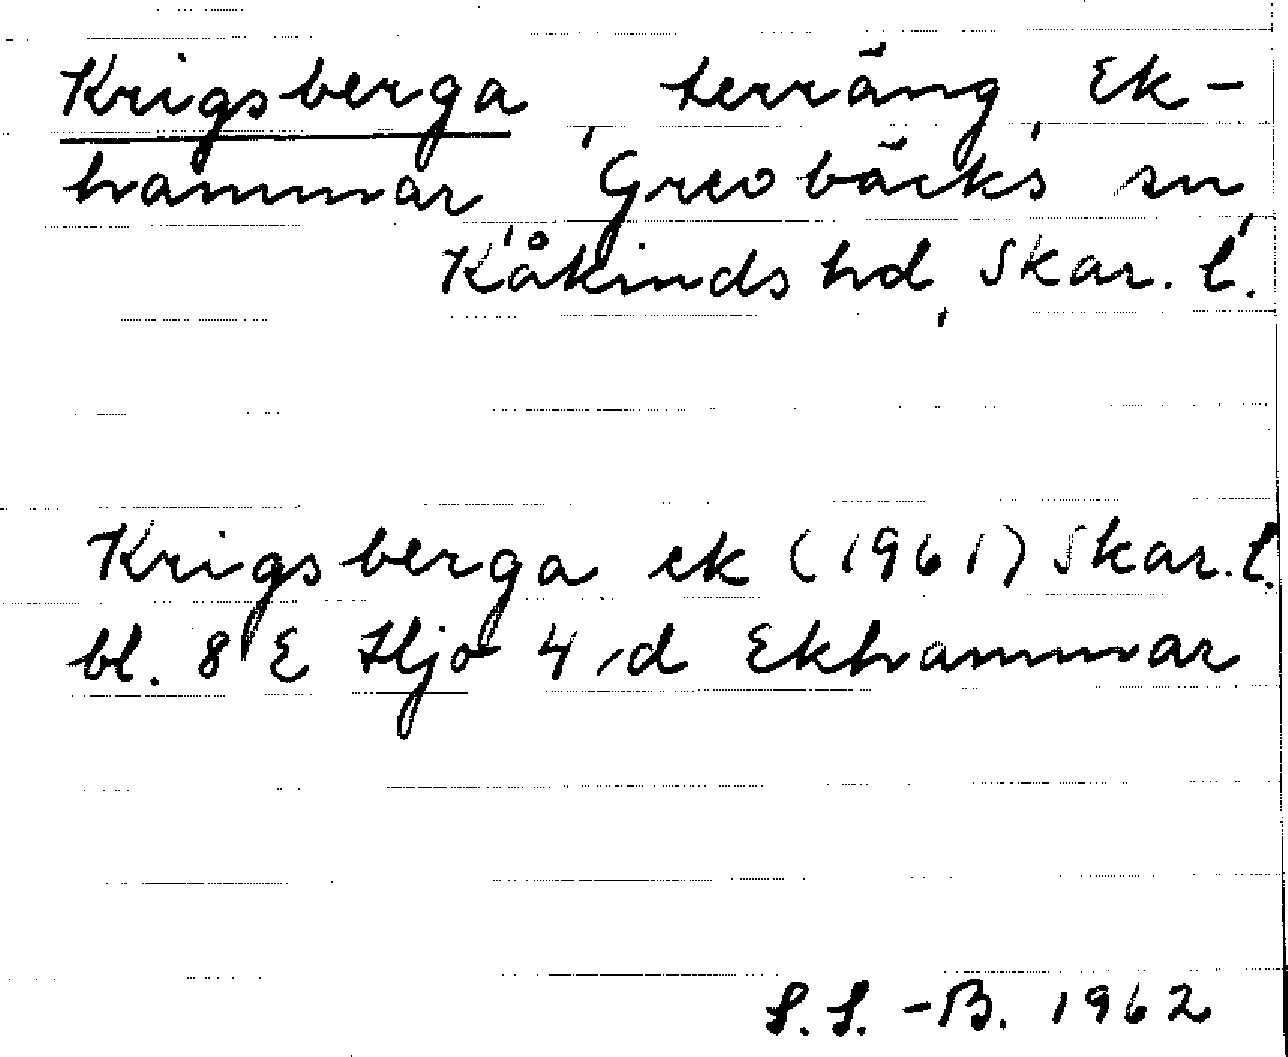 Krigsberga, terräng, Ek-
hammar, Grevbäcks sn,
Kåkinds hd, Skar. l.
Krigsberga ek (1961) Skar. l.
bl. 8 E Hjo 4 d Ekhammar
S. S. -B. 1962